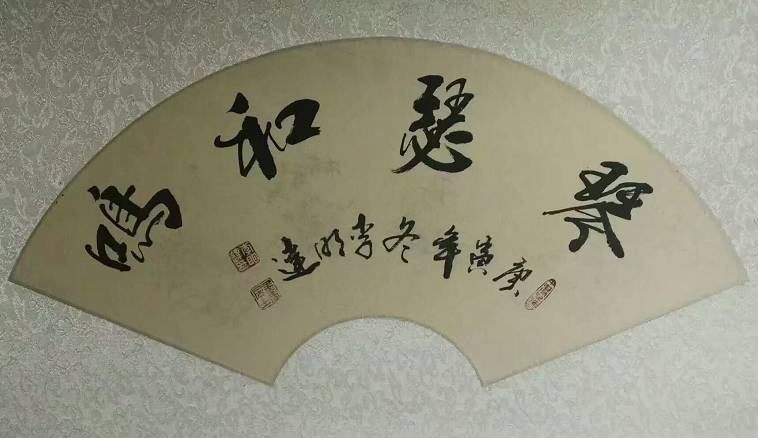 琴瑟和鸣
庚寅年冬李明达